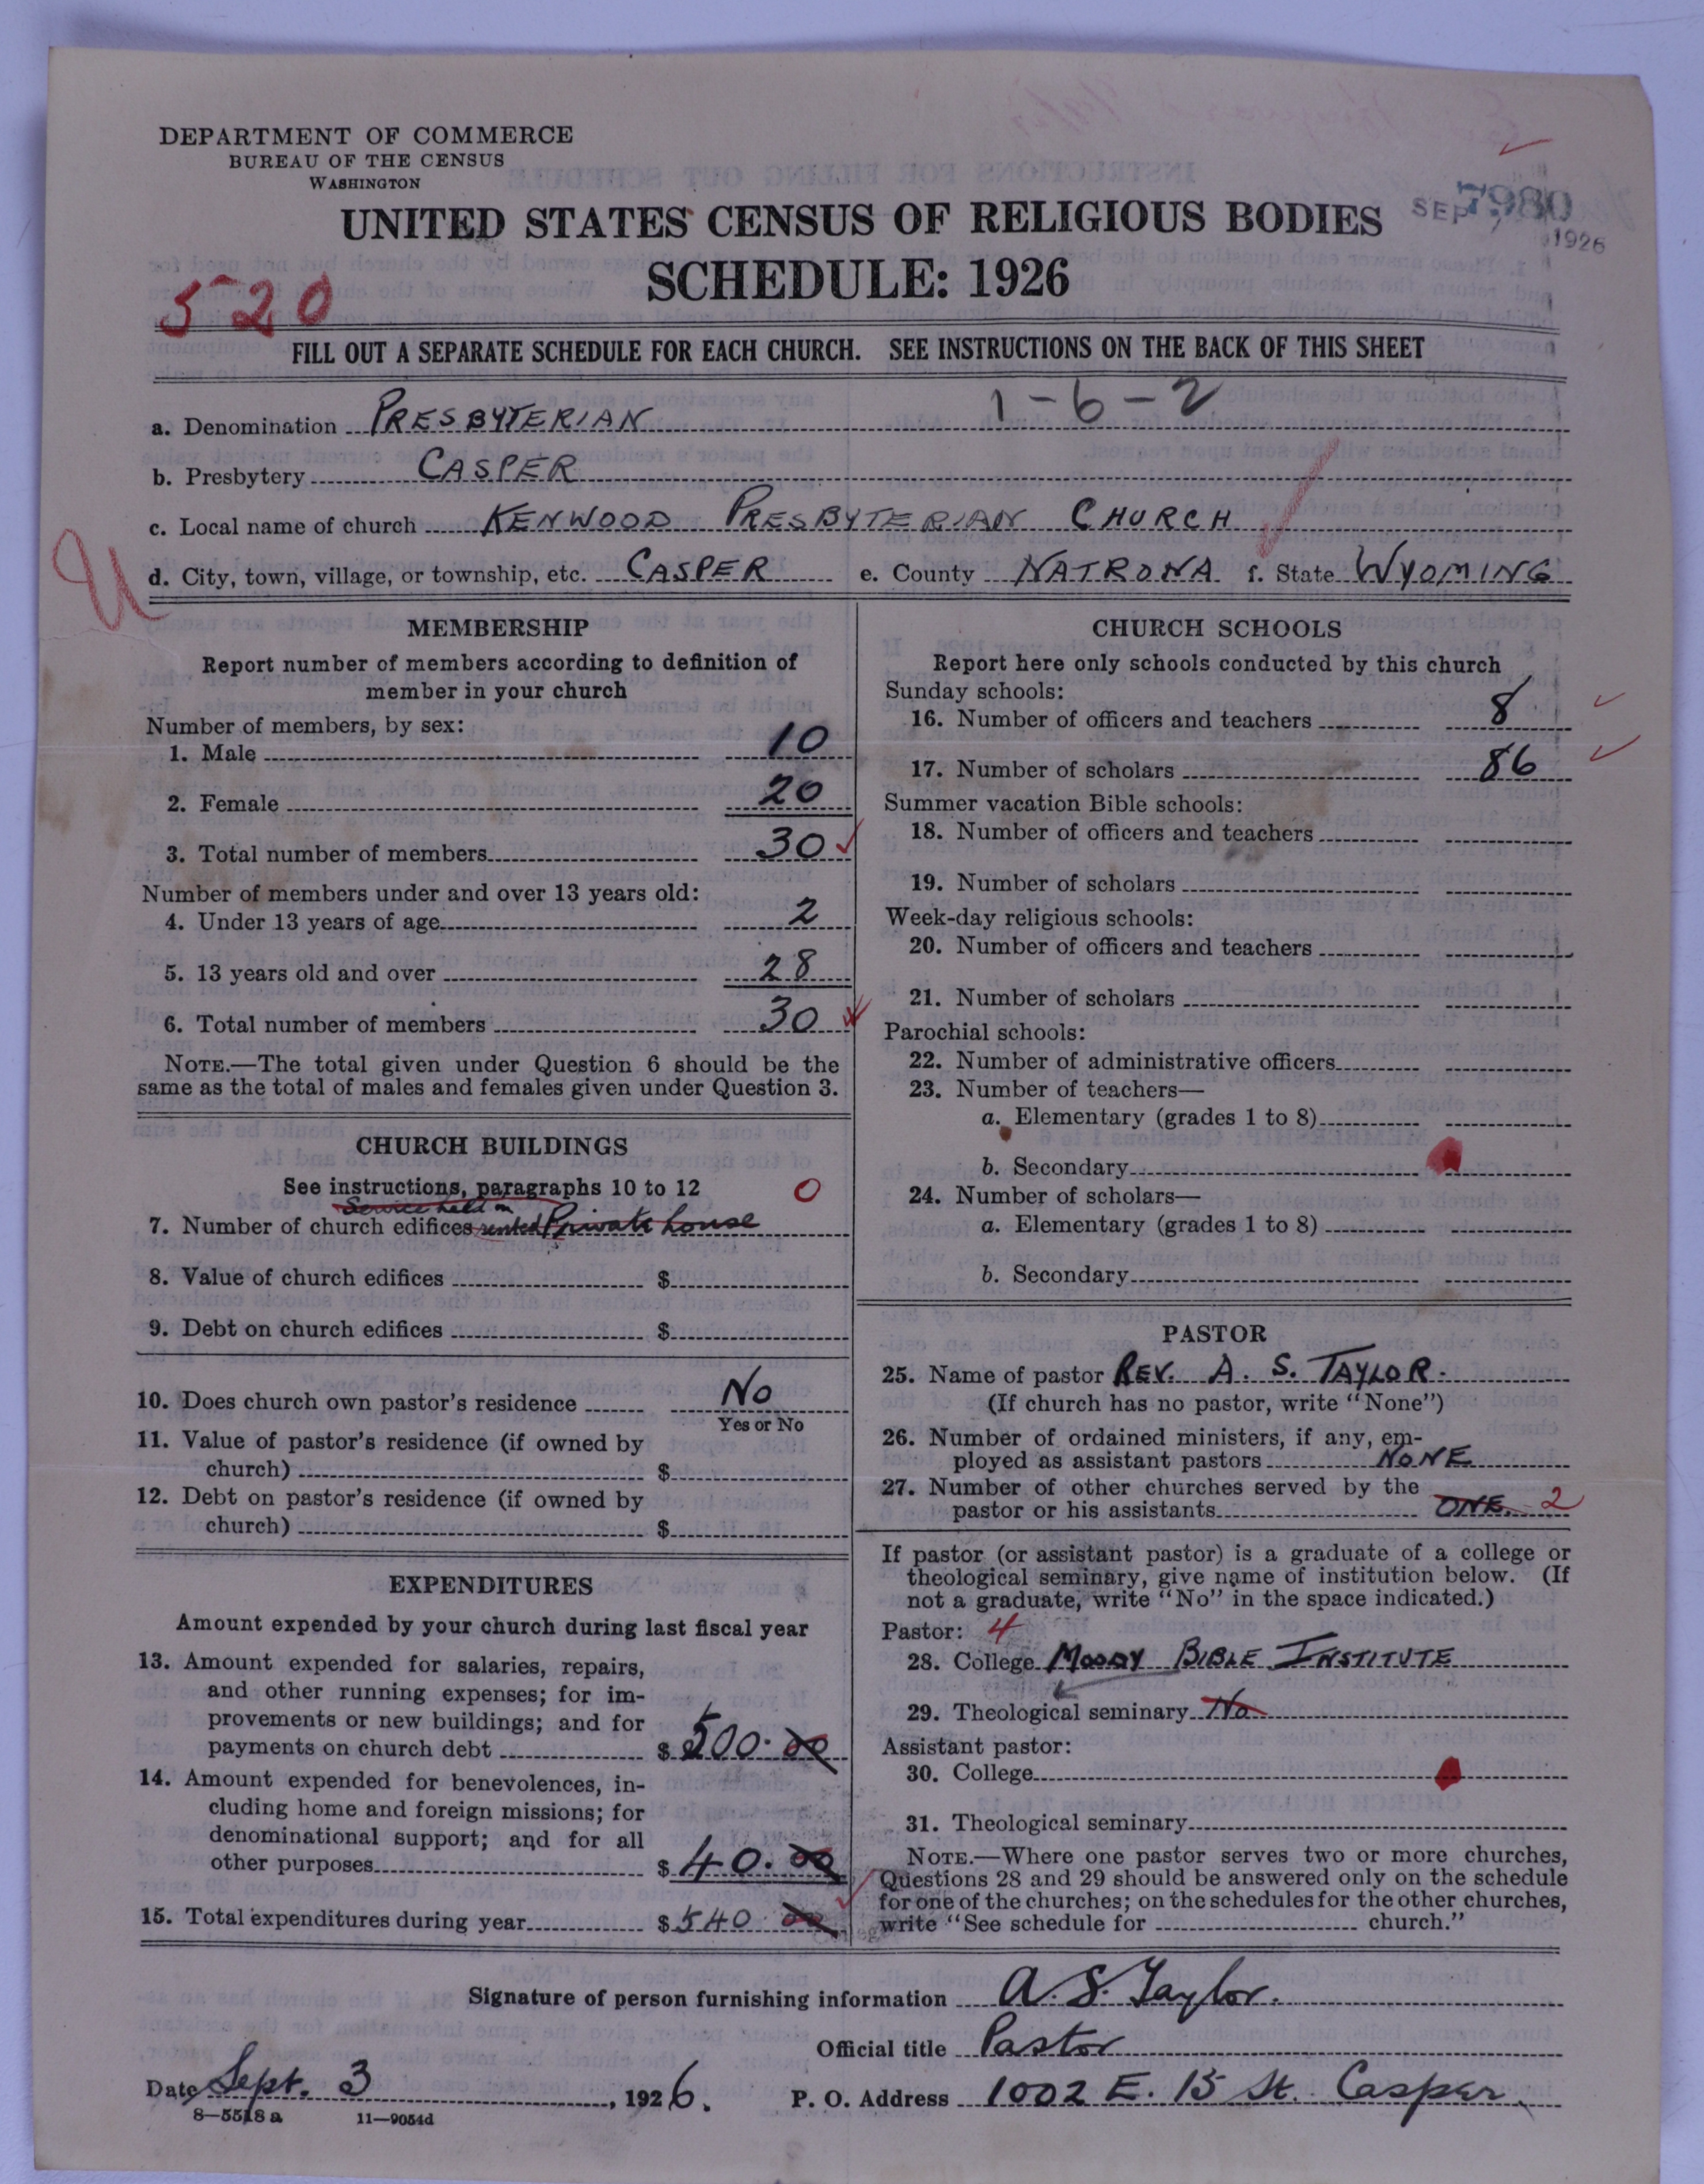 DEPARTMENT OF COMMERCE
BUREAU OF THE CENSUS
WASHINGTON
UNITED STATES CENSUS OF RELIGIOUS BODIES
SEP 1926
SCHEDULE: 1926
520
FILL OUT A SEPARATE SCHEDULE FOR EACH CHURCH. SEE INSTRUCTIONS ON THE BACK OF THIS SHEET
1-6-2
a. Denomination PRESBYTERIAN
b. Presbytery CASPER
c. Local name of church KENWOOD PRESBYTERIAN CHURCH
d. City, town, village, or township, etc. CASPER e. County NATRONA f. State WYOMING
U
MEMBERSHIP
Report number of members according to definition of
member in your church
Number of members, by sex:
1. Male 10
2. Female 20
3. Total number of members 30
Number of members under and over 13 years old:
4. Under 13 years of age 2
5. 13 years old and over 28
6. Total number of members 30
NOTE.—The total given under Question 6 should be the
same as the total of males and females given under Question 3.
CHURCH BUILDINGS
See instructions, paragraphs 10 to 12 0
Service held in
7. Number of church edifices rented Private house
8. Value of church edifices $
9. Debt on church edifices $
10. Does church own pastor's residence No
Yes or No
11. Value of pastor's residence (if owned by
church) $
12. Debt on pastor's residence (if owned by
church) $
EXPENDITURES
Amount expended by your church during last fiscal year
13. Amount expended for salaries, repairs,
and other running expenses; for im-
provements or new buildings; and for
payments on church debt $ 500.00
14. Amount expended for benevolences, in-
cluding home and foreign missions; for
denominational support; and for all
other purposes $ 40.00
15. Total expenditures during year $ 540 00
CHURCH SCHOOLS
Report here only schools conducted by this church
Sunday schools:
16. Number of officers and teachers 8
17. Number of scholars 86
Summer vacation Bible schools:
18. Number of officers and teachers
19. Number of scholars
Week-day religious schools:
20. Number of officers and teachers
21. Number of scholars
Parochial schools:
22. Number of administrative officers
23. Number of teachers—
a. Elementary (grades 1 to 8)
b. Secondary
24. Number of scholars—
a. Elementary (grades 1 to 8)
b. Secondary
PASTOR
25. Name of pastor REV. A. S. TAYLOR.
(If church has no pastor, write "None")
26. Number of ordained ministers, if any, em-
ployed as assistant pastors NONE
27. Number of other churches served by the
pastor or his assistants ONE. 2
If pastor (or assistant pastor) is a graduate of a college or
theological seminary, give name of institution below. (If
not a graduate, write "No" in the space indicated.)
Pastor: 4
28. College MOODY BIBLE INSTITUTE
29. Theological seminary No
Assistant pastor:
30. College
31. Theological seminary
NOTE.—Where one pastor serves two or more churches,
Questions 28 and 29 should be answered only on the schedule
for one of the churches; on the schedules for the other churches,
write "See schedule for church."
Signature of person furnishing information A. S. Taylor.
Official title Pastor
Date Sept. 3, 1926. P. O. Address 1002 E. 15 St. Casper
8—5518 a 11—9054d